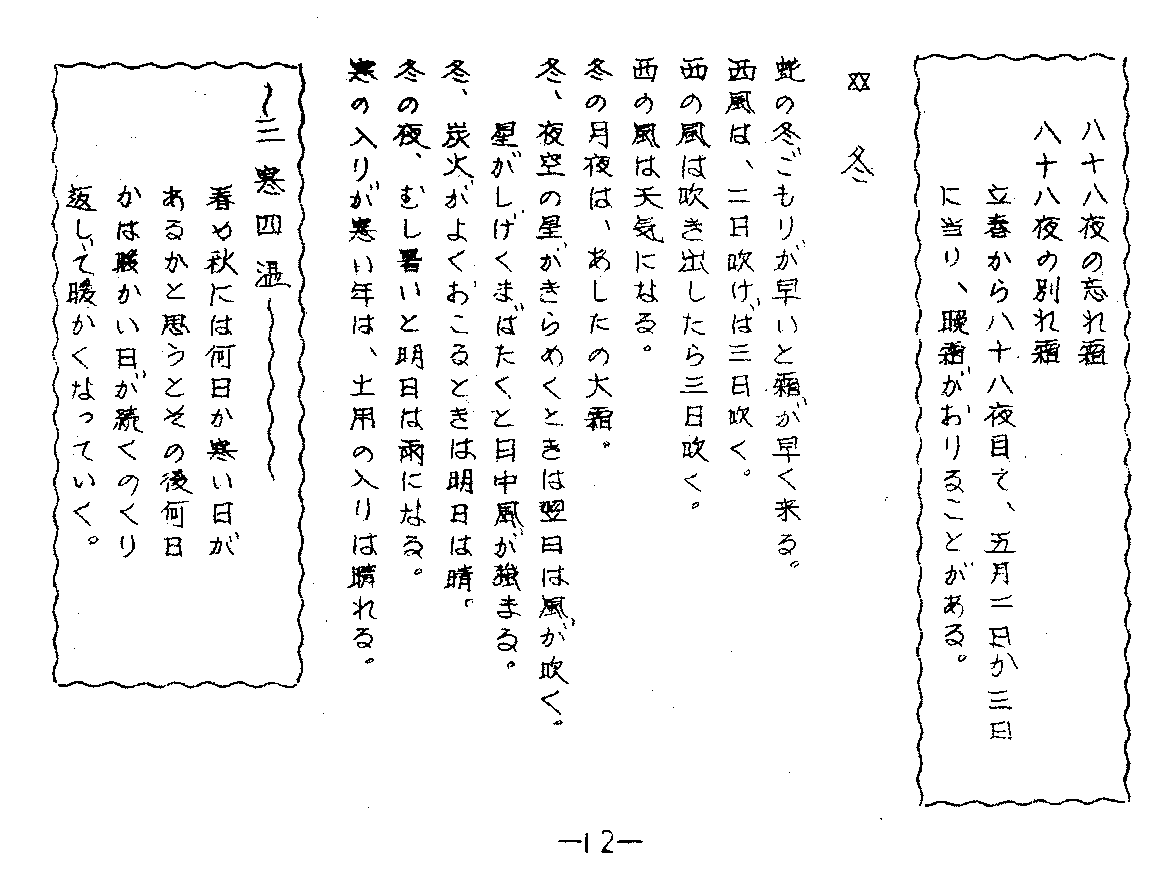 八十八夜の忘れ霜
八十八夜の別れ霜
立春から八十八夜目で、五月二日か三日
に当り、晩霜がおりることがある。
※ 冬
蛇の冬ごもりが早いと霜が早く来る。
西風は、二日吹けば三日吹く。
西の風は吹き出したら三日吹く。
西の風は天気になる。
冬の月夜は、あしたの大霜。
冬、夜空の星がきらめくときは翌日は風が吹く。
星がしげくまばたくと日中風が強まる。
冬、炭火がよくおこるときは明日は晴。
冬の夜、むし暑いと明日は雨になる。
寒の入りが寒い年は、土用の入りは晴れる。
〜三寒四温〜
春や秋には何日か寒い日が
あるかと思うとその後何日
かは暖かい日が続くのくり
返しで暖かくなっていく。
—12—